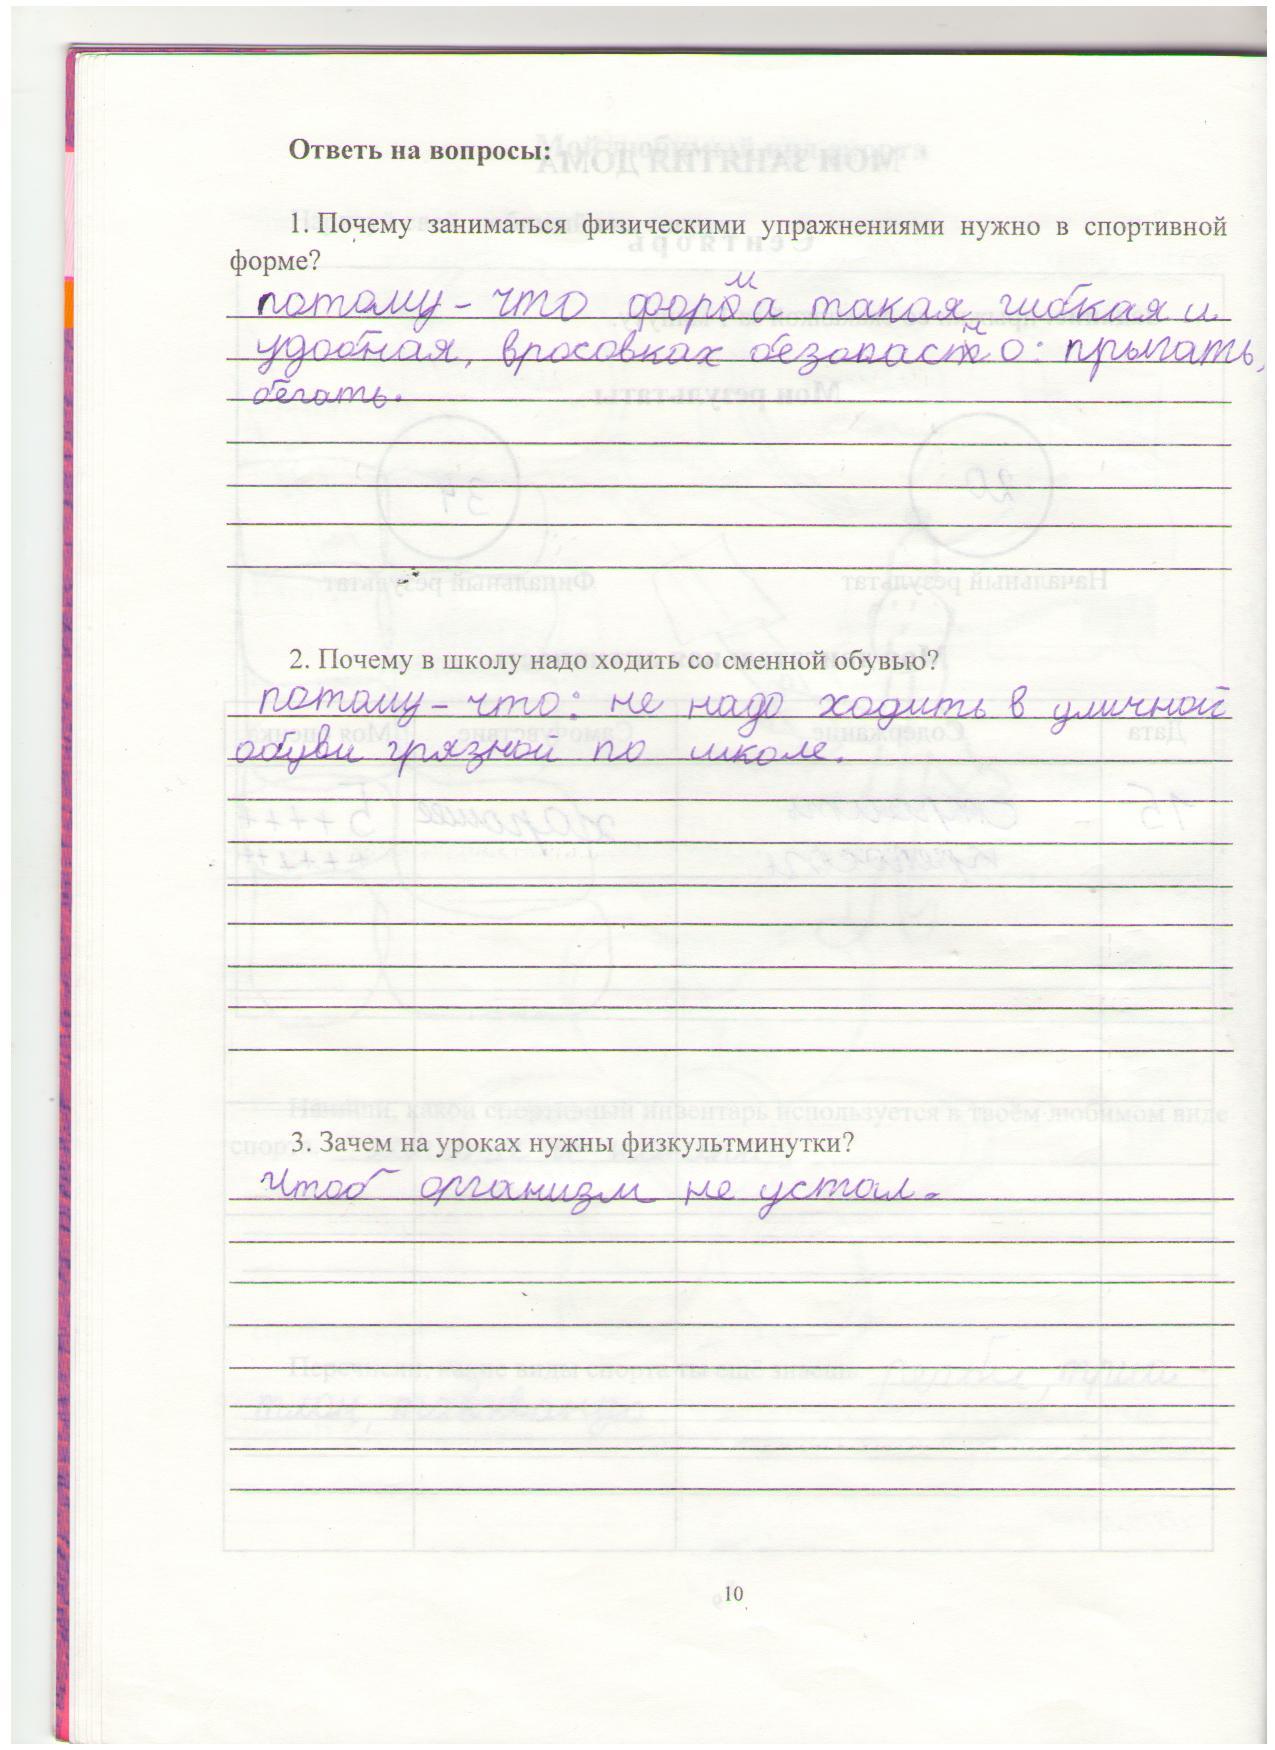 Ответь на вопросы:
1. Почему заниматься физическими упражнениями нужно в спортивной
форме?
потому-что форма такая гибкая и
удобная, вросовках безопасно: прыгать,
бегать.
2. Почему в школу надо ходить со сменной обувью?
потому-что: не надо ходить в уличной
обуви грязной по школе.
3. Зачем на уроках нужны физкультминутки?
Чтоб организм не устал.
10